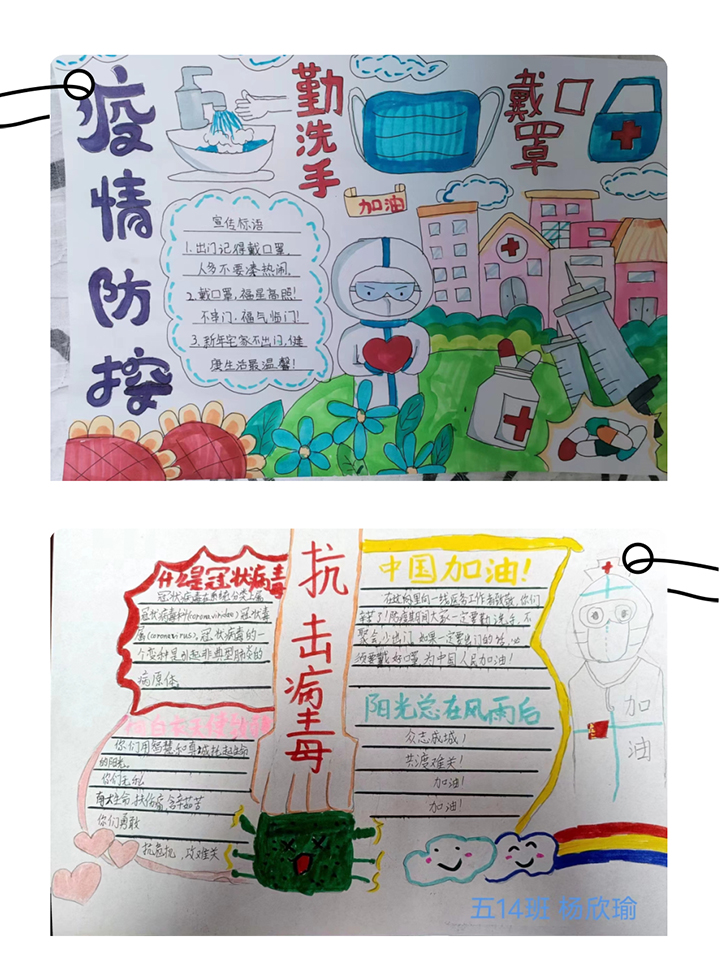 疫情防控
勤洗手
戴口罩
加油
宣传标语
1.出门记得戴口罩,
人多不要凑热闹.
2.戴口罩,福星高照!
不串门,福气临门!
3.新年宅家不出门,健
康生活最温馨!
抗击病毒
什么是冠状病毒
冠状病毒在系统分类上属
冠状病毒科(coronaviridae)冠状毒
属(coronavirus),冠状病毒的一
个变种是引起非典型肺炎的
病原体.
中国加油!
在此向一线医务工作者致敬,你们
辛苦了!防疫期间大家一定要勤洗手,不
聚会,少出门,如果一定要出门的话,必
须要戴好口罩.为中国人民加油!
阳光总在风雨后
众志成城,
共渡难关!
加油!
加油!
你们用智慧和真诚托起生命
的阳光.
你们无私
救死扶伤,含辛茹苦
你们勇敢
抗危机,攻难关
加油
五14班 杨欣瑜